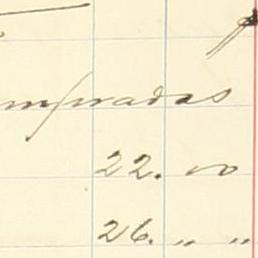 mpradas
22. 00
26. „ „